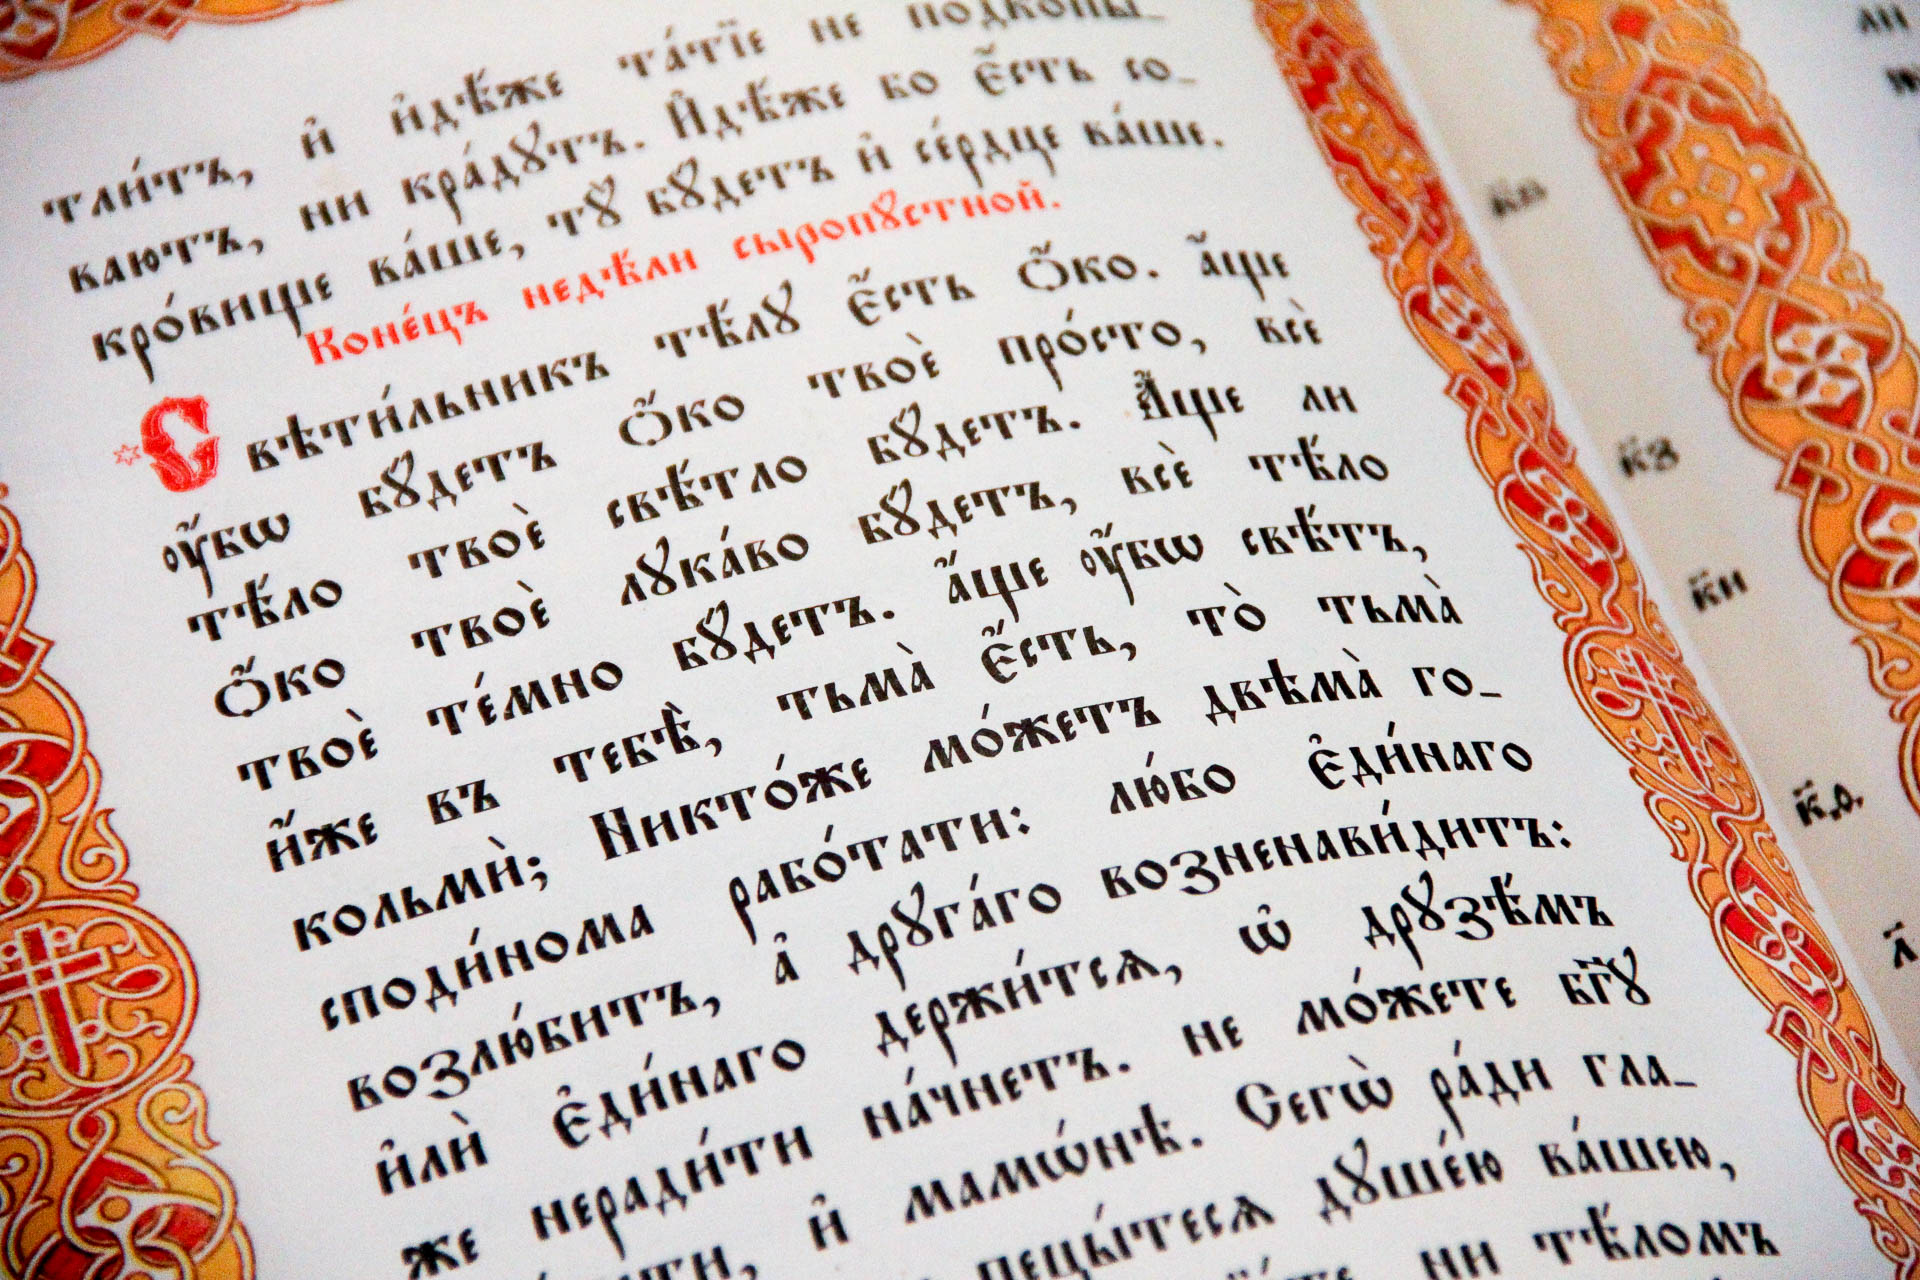 тли́тъ, и҆ и҆дѣ́же та́тїе не подкопы_
ваютъ, ни кра́дꙋтъ. И҆дѣ́же бо є҆́сть со_
кро́вище ва́ше, тꙋ̀ бꙋ́детъ и҆ се́рдце ва́ше.
Коне́цъ недѣ́ли сыропꙋ́стной.
* Свѣти́льникъ тѣ́лꙋ є҆́сть ѻ҆́ко. а҆́ще
ᲂу҆́бѡ бꙋ́детъ ѻ҆́ко твоѐ про́сто, всѐ
тѣ́ло твоѐ свѣ́тло бꙋ́детъ. А҆́ще ли
ѻ҆́ко твоѐ лꙋка́во бꙋ́детъ, всѐ тѣ́ло
твоѐ те́мно бꙋ́детъ. а҆́ще ᲂу҆́бѡ свѣ́тъ,
и҆́же въ тебѣ̀, тьма̀ є҆́сть, то̀ тьма̀
кольмѝ; Никто́же мо́жетъ двѣма̀ го_
споди́нома рабо́тати: лю́бо є҆ди́наго
возлю́битъ, а҆ дрꙋга́го возненави́дитъ:
и҆лѝ є҆ди́наго держи́тсѧ, ѡ҆ дрꙋзѣ́мъ
же неради́ти на́чнетъ. не мо́жете бг҃ꙋ
и҆ мамѡ́нѣ. Сегѡ̀ ра́ди гла_
пецы́тесѧ дꙋше́ю ва́шею,
ни тѣ́ломъ
к҃в
к҃з
к҃и
к҃ѳ.
л҃
ли